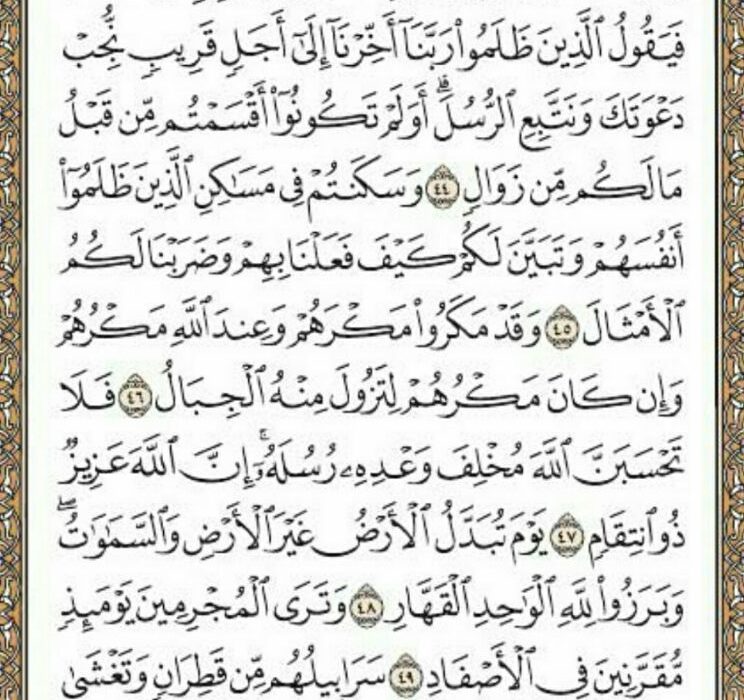 فَيَقُولُ ٱلَّذِينَ ظَلَمُوا۟ رَبَّنَآ أَخِّرْنَآ إِلَىٰٓ أَجَلٍ قَرِيبٍ نُّجِبْ
دَعْوَتَكَ وَنَتَّبِعِ ٱلرُّسُلَ ۗ أَوَلَمْ تَكُونُوٓا۟ أَقْسَمْتُم مِّن قَبْلُ
مَا لَكُم مِّن زَوَالٍ ٤٤ وَسَكَنتُمْ فِى مَسَـٰكِنِ ٱلَّذِينَ ظَلَمُوٓا۟
أَنفُسَهُمْ وَتَبَيَّنَ لَكُمْ كَيْفَ فَعَلْنَا بِهِمْ وَضَرَبْنَا لَكُمُ
ٱلْأَمْثَالَ ٤٥ وَقَدْ مَكَرُوا۟ مَكْرَهُمْ وَعِندَ ٱللَّهِ مَكْرُهُمْ
وَإِن كَانَ مَكْرُهُمْ لِتَزُولَ مِنْهُ ٱلْجِبَالُ ٤٦ فَلَا
تَحْسَبَنَّ ٱللَّهَ مُخْلِفَ وَعْدِهِۦ رُسُلَهُۥٓ ۚ إِنَّ ٱللَّهَ عَزِيزٌ
ذُو ٱنتِقَامٍ ٤٧ يَوْمَ تُبَدَّلُ ٱلْأَرْضُ غَيْرَ ٱلْأَرْضِ وَٱلسَّمَـٰوَٰتُ ۖ
وَبَرَزُوا۟ لِلَّهِ ٱلْوَٰحِدِ ٱلْقَهَّارِ ٤٨ وَتَرَى ٱلْمُجْرِمِينَ يَوْمَئِذٍ
مُّقَرَّنِينَ فِى ٱلْأَصْفَادِ ٤٩ سَرَابِيلُهُم مِّن قَطِرَانٍ وَتَغْشَىٰ